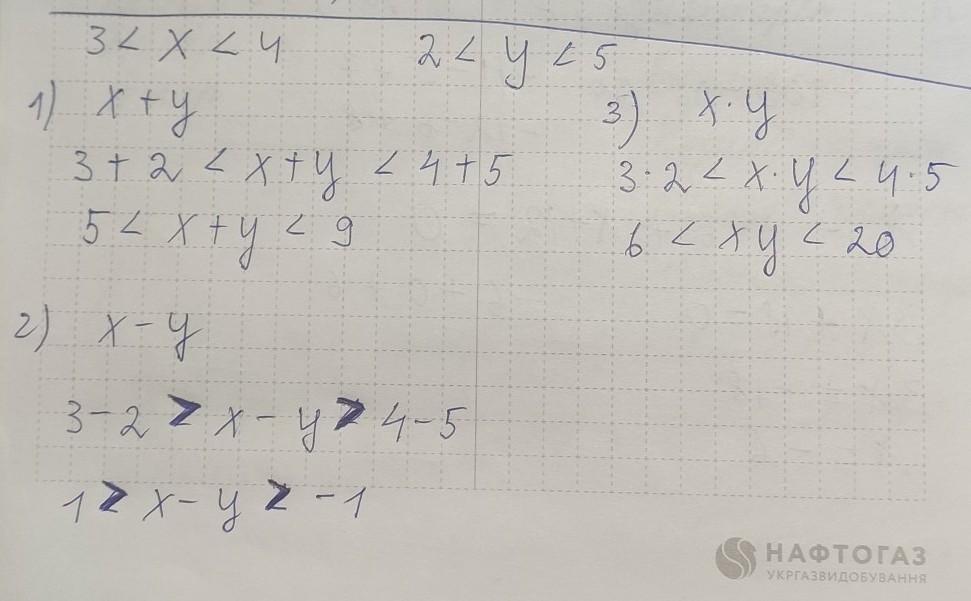 3 < x < 4 2 < y < 5
1) x + y
3 + 2 < x + y < 4 + 5
5 < x + y < 9
2) x - y
3 - 2 > x - y > 4 - 5
1 > x - y > -1
3) x · y
3 · 2 < x · y < 4 · 5
6 < xy < 20
НАФТОГАЗ
УКРГАЗВИДОБУВАННЯ